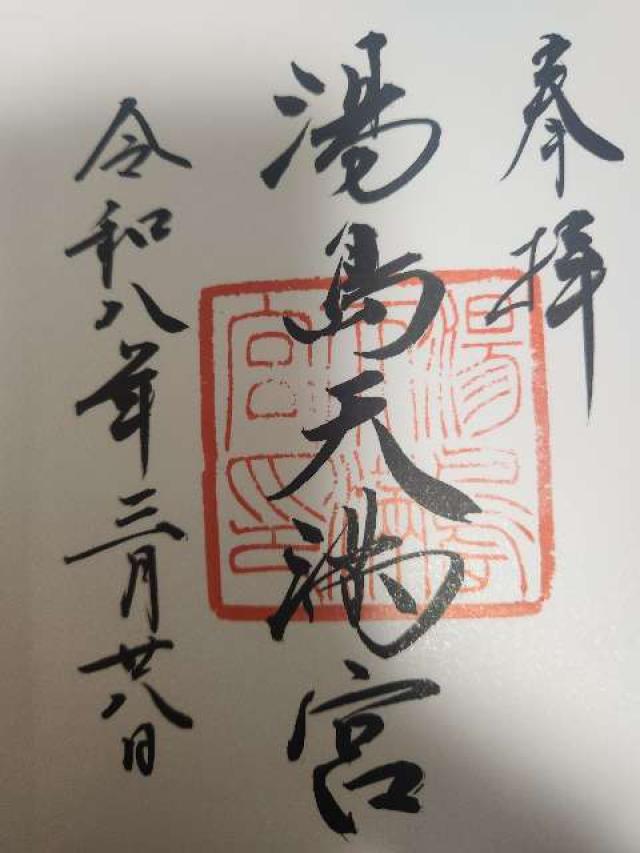 奉拝
湯島天満宮
湯島天満宮印
令和八年三月廿八日